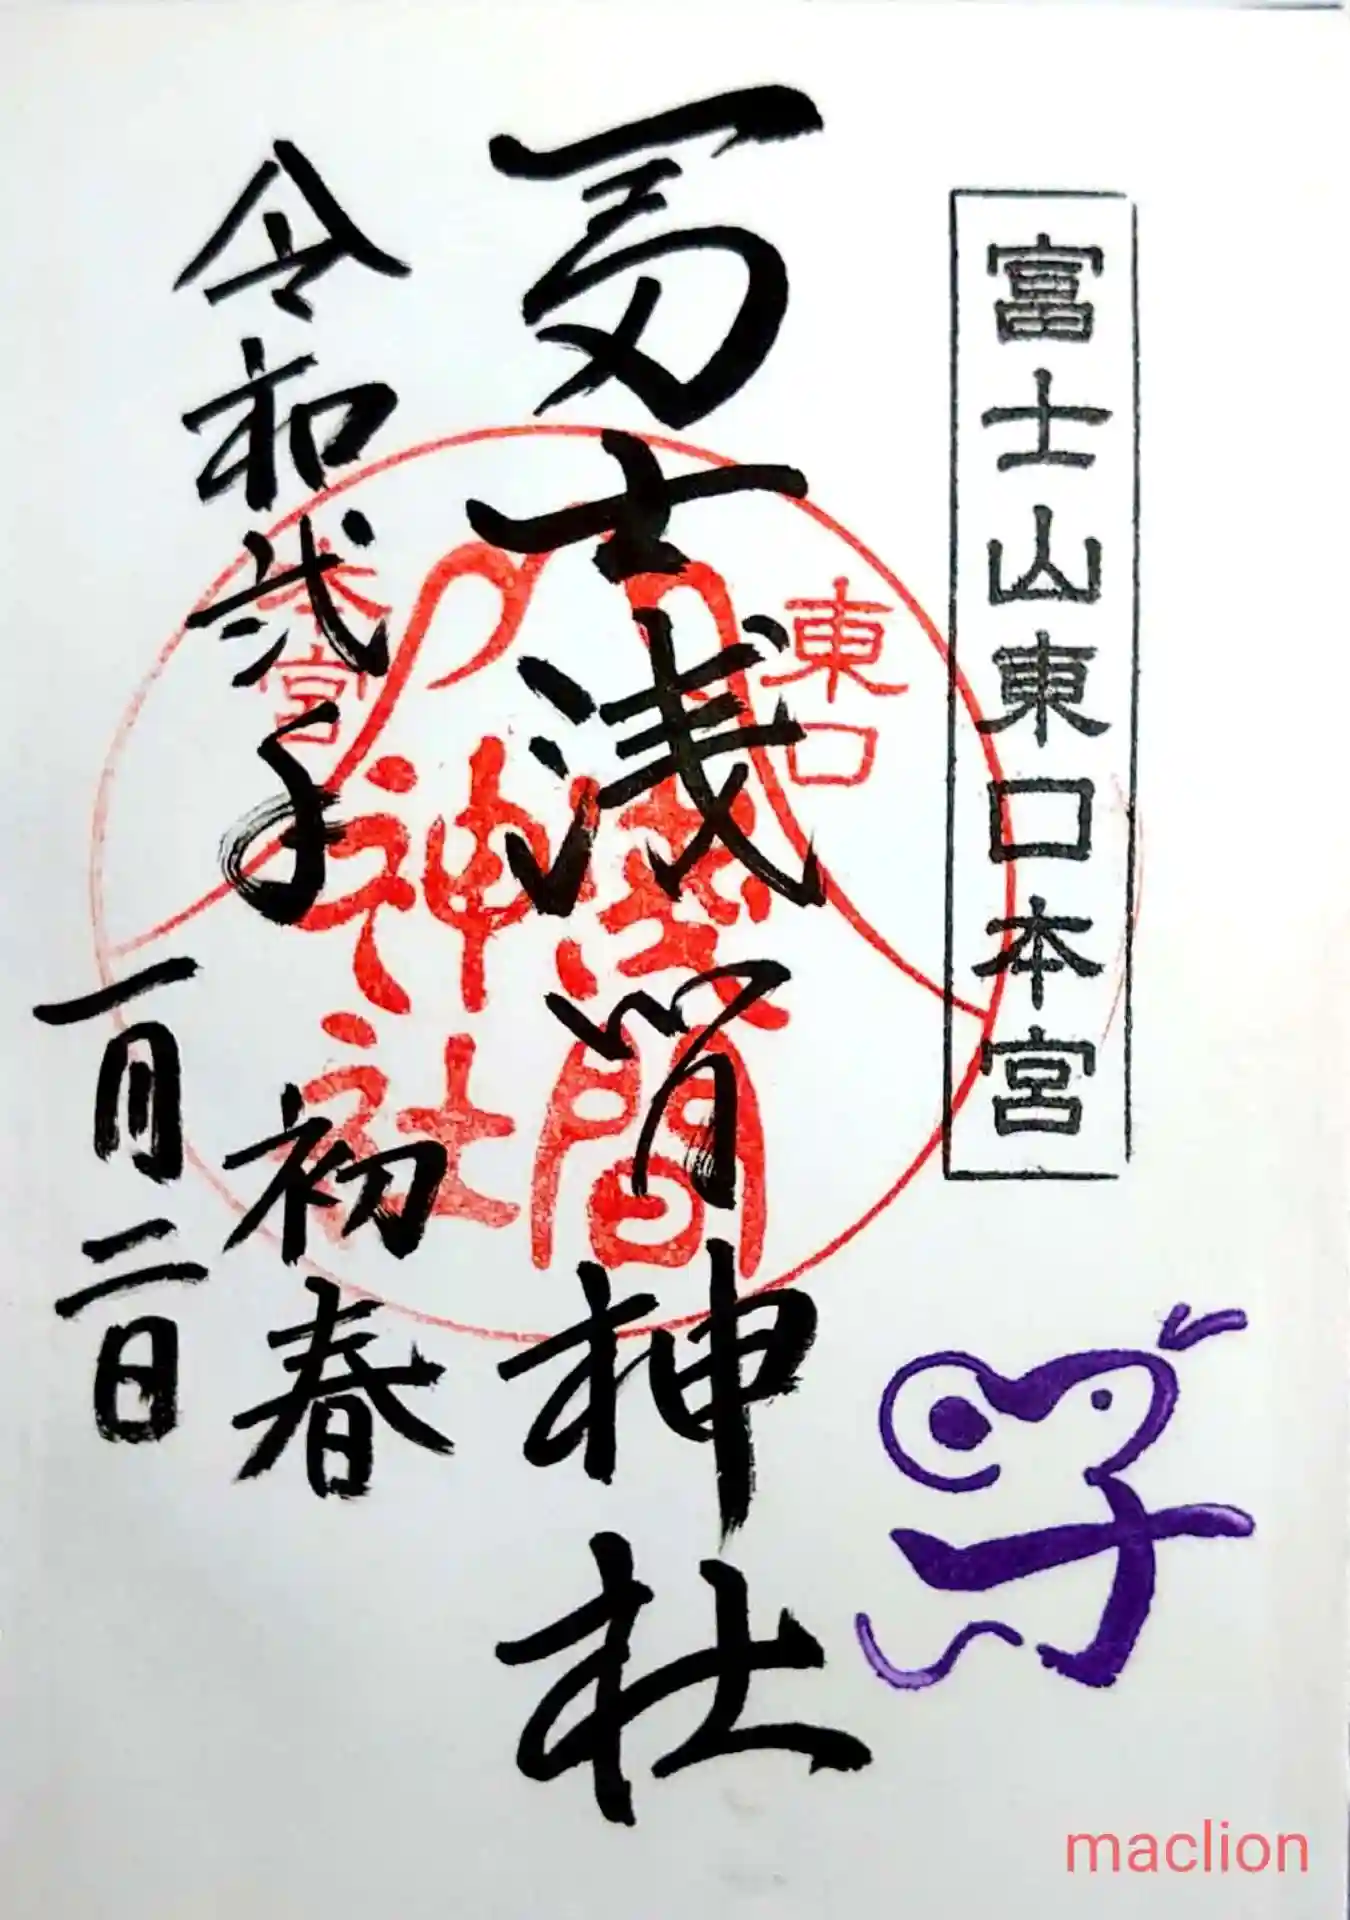 富士山東口本宮
冨士浅間神社
東口
本宮
浅間
神社
令和弐子 初春
一月二日
子
maclion